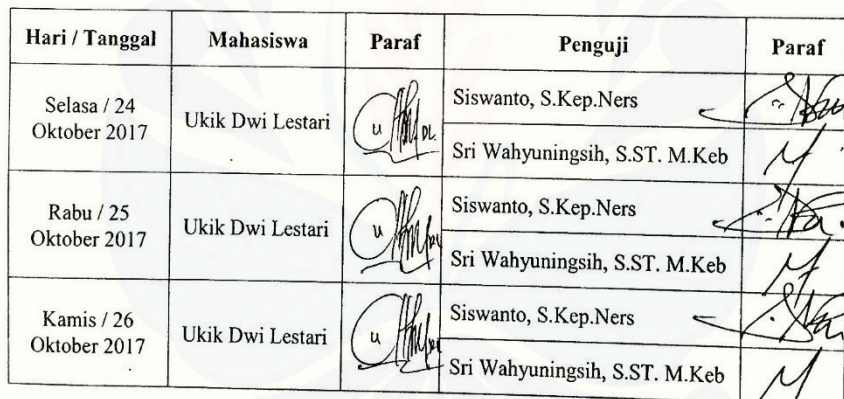 Hari / Tanggal Mahasiswa Paraf Penguji Paraf
Selasa / 24
Oktober 2017
Ukik Dwi Lestari
Siswanto, S.Kep.Ners
Sri Wahyuningsih, S.ST. M.Keb
Rabu / 25
Oktober 2017
Ukik Dwi Lestari
Siswanto, S.Kep.Ners
Sri Wahyuningsih, S.ST. M.Keb
Kamis / 26
Oktober 2017
Ukik Dwi Lestari
Siswanto, S.Kep.Ners
Sri Wahyuningsih, S.ST. M.Keb